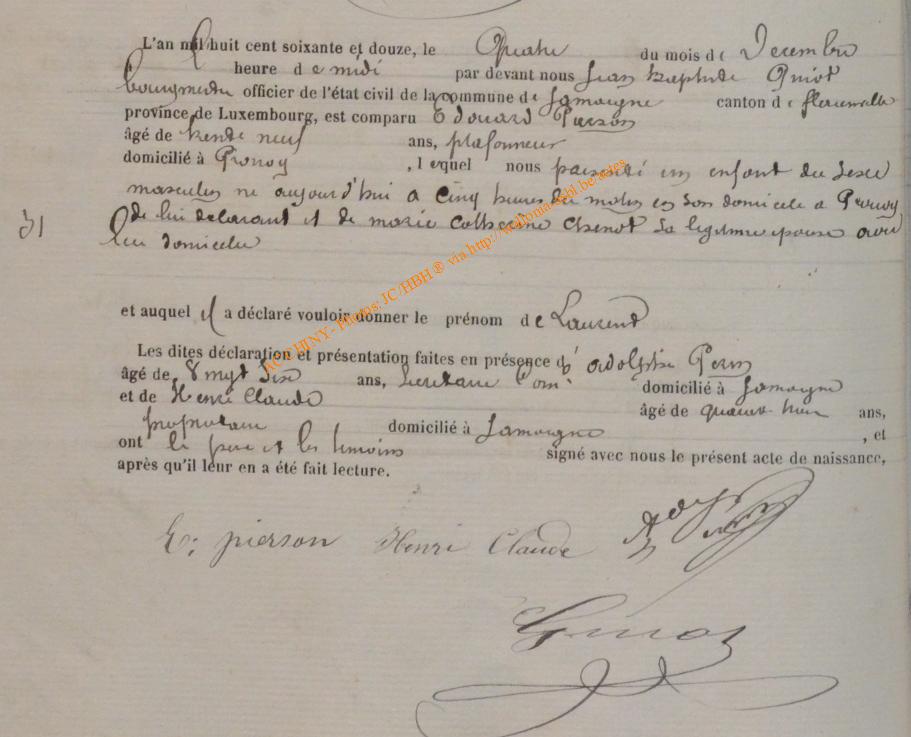 L'an mil huit cent soixante et douze, le Quatre du mois de Decembre
à heure de midi par devant nous Jean Baptiste Guiot
bourgmestre officier de l'état civil de la commune de Jamoigne canton de florenville
province de Luxembourg, est comparu Edouard Pierson
âgé de trente neuf ans, plafonneur
domicilié à Prouvy , lequel nous présenté un enfant du sexe
masculin né aujourd'hui a cinq heures du matin en son domicile a Prouvy
31 de lui déclarant et de marie Catherine Chenot sa légitime épouse avec
lui domiciliée
et auquel il a déclaré vouloir donner le prénom de Laurent
Les dites déclaration et présentation faites en présence d' adolphe Perin
âgé de vingt six ans, Secretaire Com¹ domicilié à Jamoigne
et de Henri Claude âgé de quarante ans,
propriétaire domicilié à Jamoigne , et
ont le père et les témoins signé avec nous le présent acte de naissance,
après qu'il leur en a été fait lecture.
E. pierson Henri Claude
Guiot
ACCHINY - Photos JC/HBH ® via http://wallomarobl.be-actes